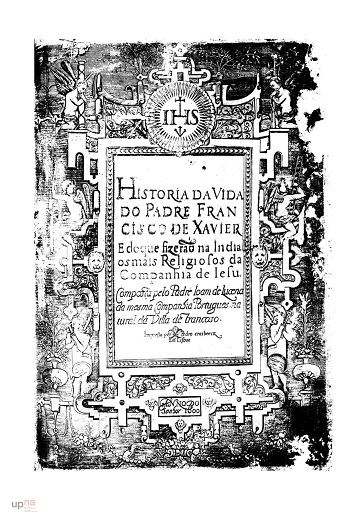 IHS
HISTORIA DA VIDA
DO PADRE FRAN
CISCO DE XAVIER
E do que fizerão na India
os mais Religiosos da
Companhia de Iesu.
Composta pelo Padre Ioam de Lucena
da mesma Companhia Portugues na
tural da Villa de Trancoso.
Impressa per Pedro crasbeeck
em Lisboa
ANNO DO
Senhor 1600
upna